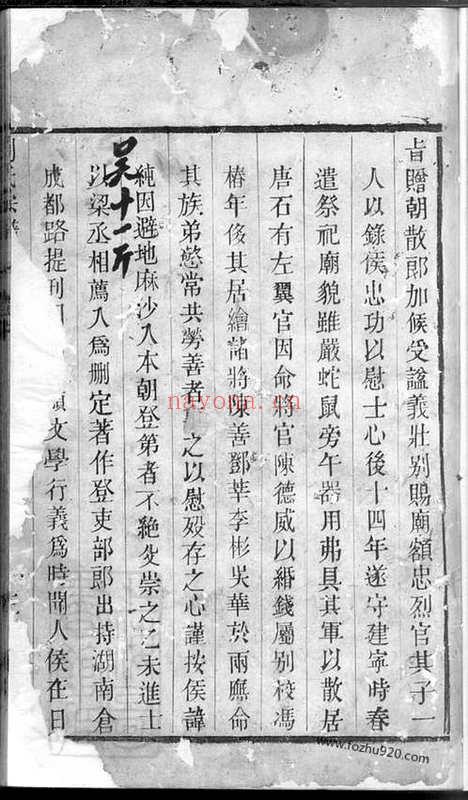 旨贈朝散郎加候受諡義壯别賜廟額忠烈官其子一
人以錄侯忠功以慰士心後十四年遂守建寧時春
遣祭祀廟貌雖嚴蛇鼠旁午器用弗具其軍以散居
唐石有左翼官因命將官陳德威以緡錢屬别校馮
椿年俢其居繪諸將陳善鄧莘李彬吳華於兩廡命
其族弟慤常共勞善者 之以慰殁存之心謹按侯諱
純因避地麻沙入本朝登第者不絶 崇之乙未進士
梁丞相薦入爲删定著作登吏部郎出持湖南倉
成都路提刊 文學行義爲時聞人侯在日
吴十一斤
nayona.cn
www.fozhu920.com